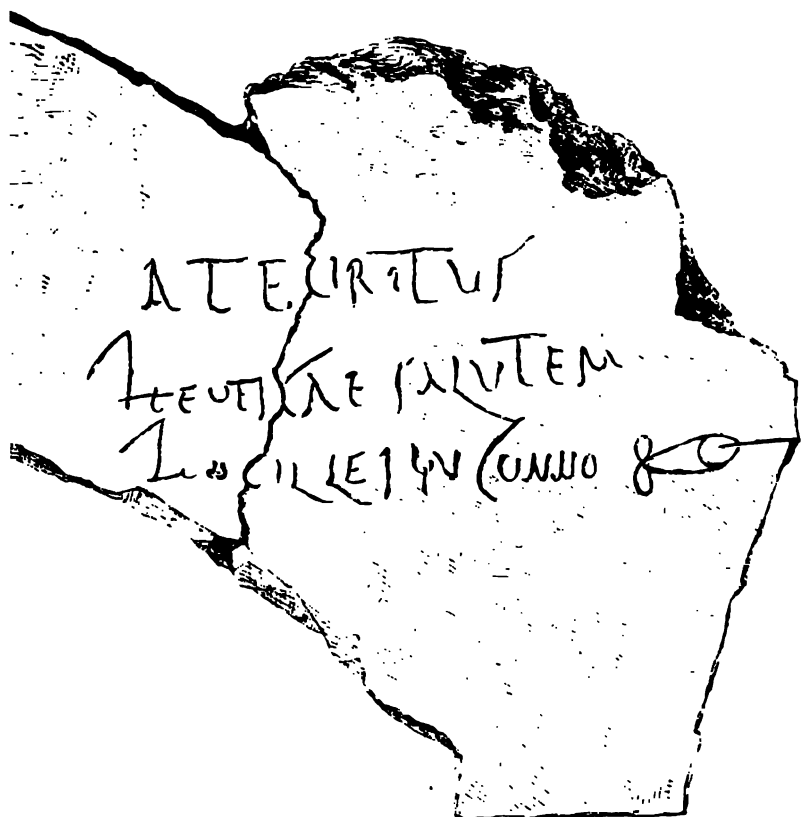 ATEVRITVS
HEVTICAE SALVTEM
HOC ILLEI IN CVNNO